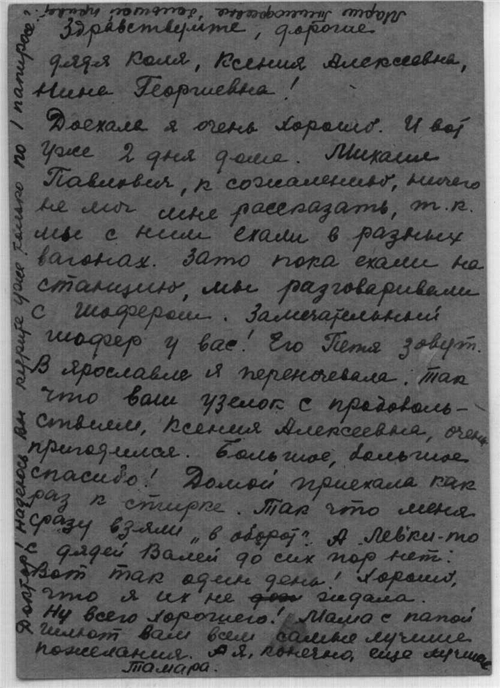 Здравствуйте, дорогие
дядя Коля, Ксения Алексеевна,
Нина Георгиевна!
Доехала я очень хорошо. И вот
уже 2 дня дома. Михаил
Павлович, к сожалению, ничего
не мог мне рассказать, т.к.
мы с ним ехали в разных
вагонах. Зато пока ехали на
станцию, мы разговаривали
с шофером. Замечательный
шофер у вас! Его Петя зовут.
В Ярославле я переночевала. Так
что ваш узелок с продоволь-
ствием, Ксения Алексеевна, очень
пригодился. Большое, большое
спасибо! Домой приехала как
раз к стирке. Так что меня
сразу взяли „в оборот". А Левки-то
с дядей Валей до сих пор нет.
Вот так один день! Хорошо,
что я их не ждала.
Ну всего хорошего! Мама с папой
шлют вам всем самые лучшие
пожелания. А я, конечно, еще лучшие
Тамара.
Доктор! надеюсь вы курите уже только по 1 папиросе?
Марии Тимофеевне большой привет.